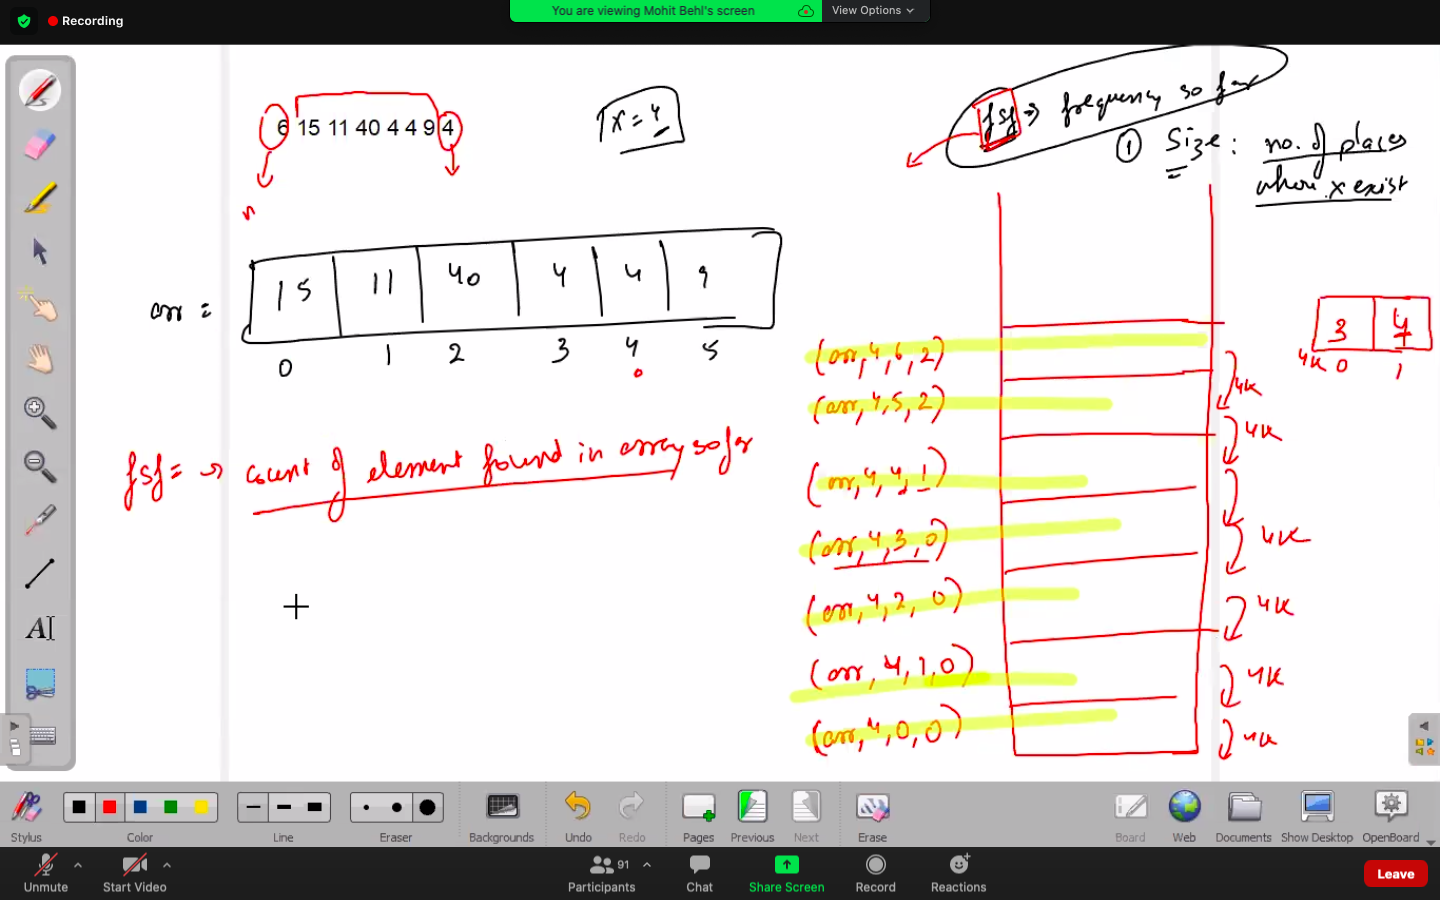 Recording
You are viewing Mohit Behl's screen
View Options
6 15 11 40 4 4 9 4
x = 4
fsf => frequency so far
① Size: no. of places
where x exist
n
arr =
15 11 40 4 4 9
0 1 2 3 4 5
fsf = → count of element found in array so far
(arr, 4, 6, 2)
(arr, 4, 5, 2)
(arr, 4, 4, 1)
(arr, 4, 3, 0)
(arr, 4, 2, 0)
(arr, 4, 1, 0)
(arr, 4, 0, 0)
3 4
4K 0 1
4K
4K
4K
4K
4K
4K
Stylus
Color
Line
Eraser
Backgrounds
Undo
Redo
Pages
Previous
Next
Erase
Board
Web
Documents
Show Desktop
OpenBoard
Unmute
Start Video
91
Participants
Chat
Share Screen
Record
Reactions
Leave